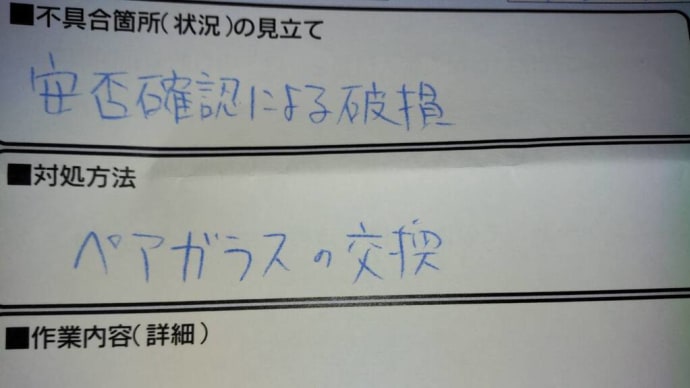 ■不具合箇所(状況)の見立て
安否確認による破損
■対処方法
ペアガラスの交換
■作業内容(詳細)